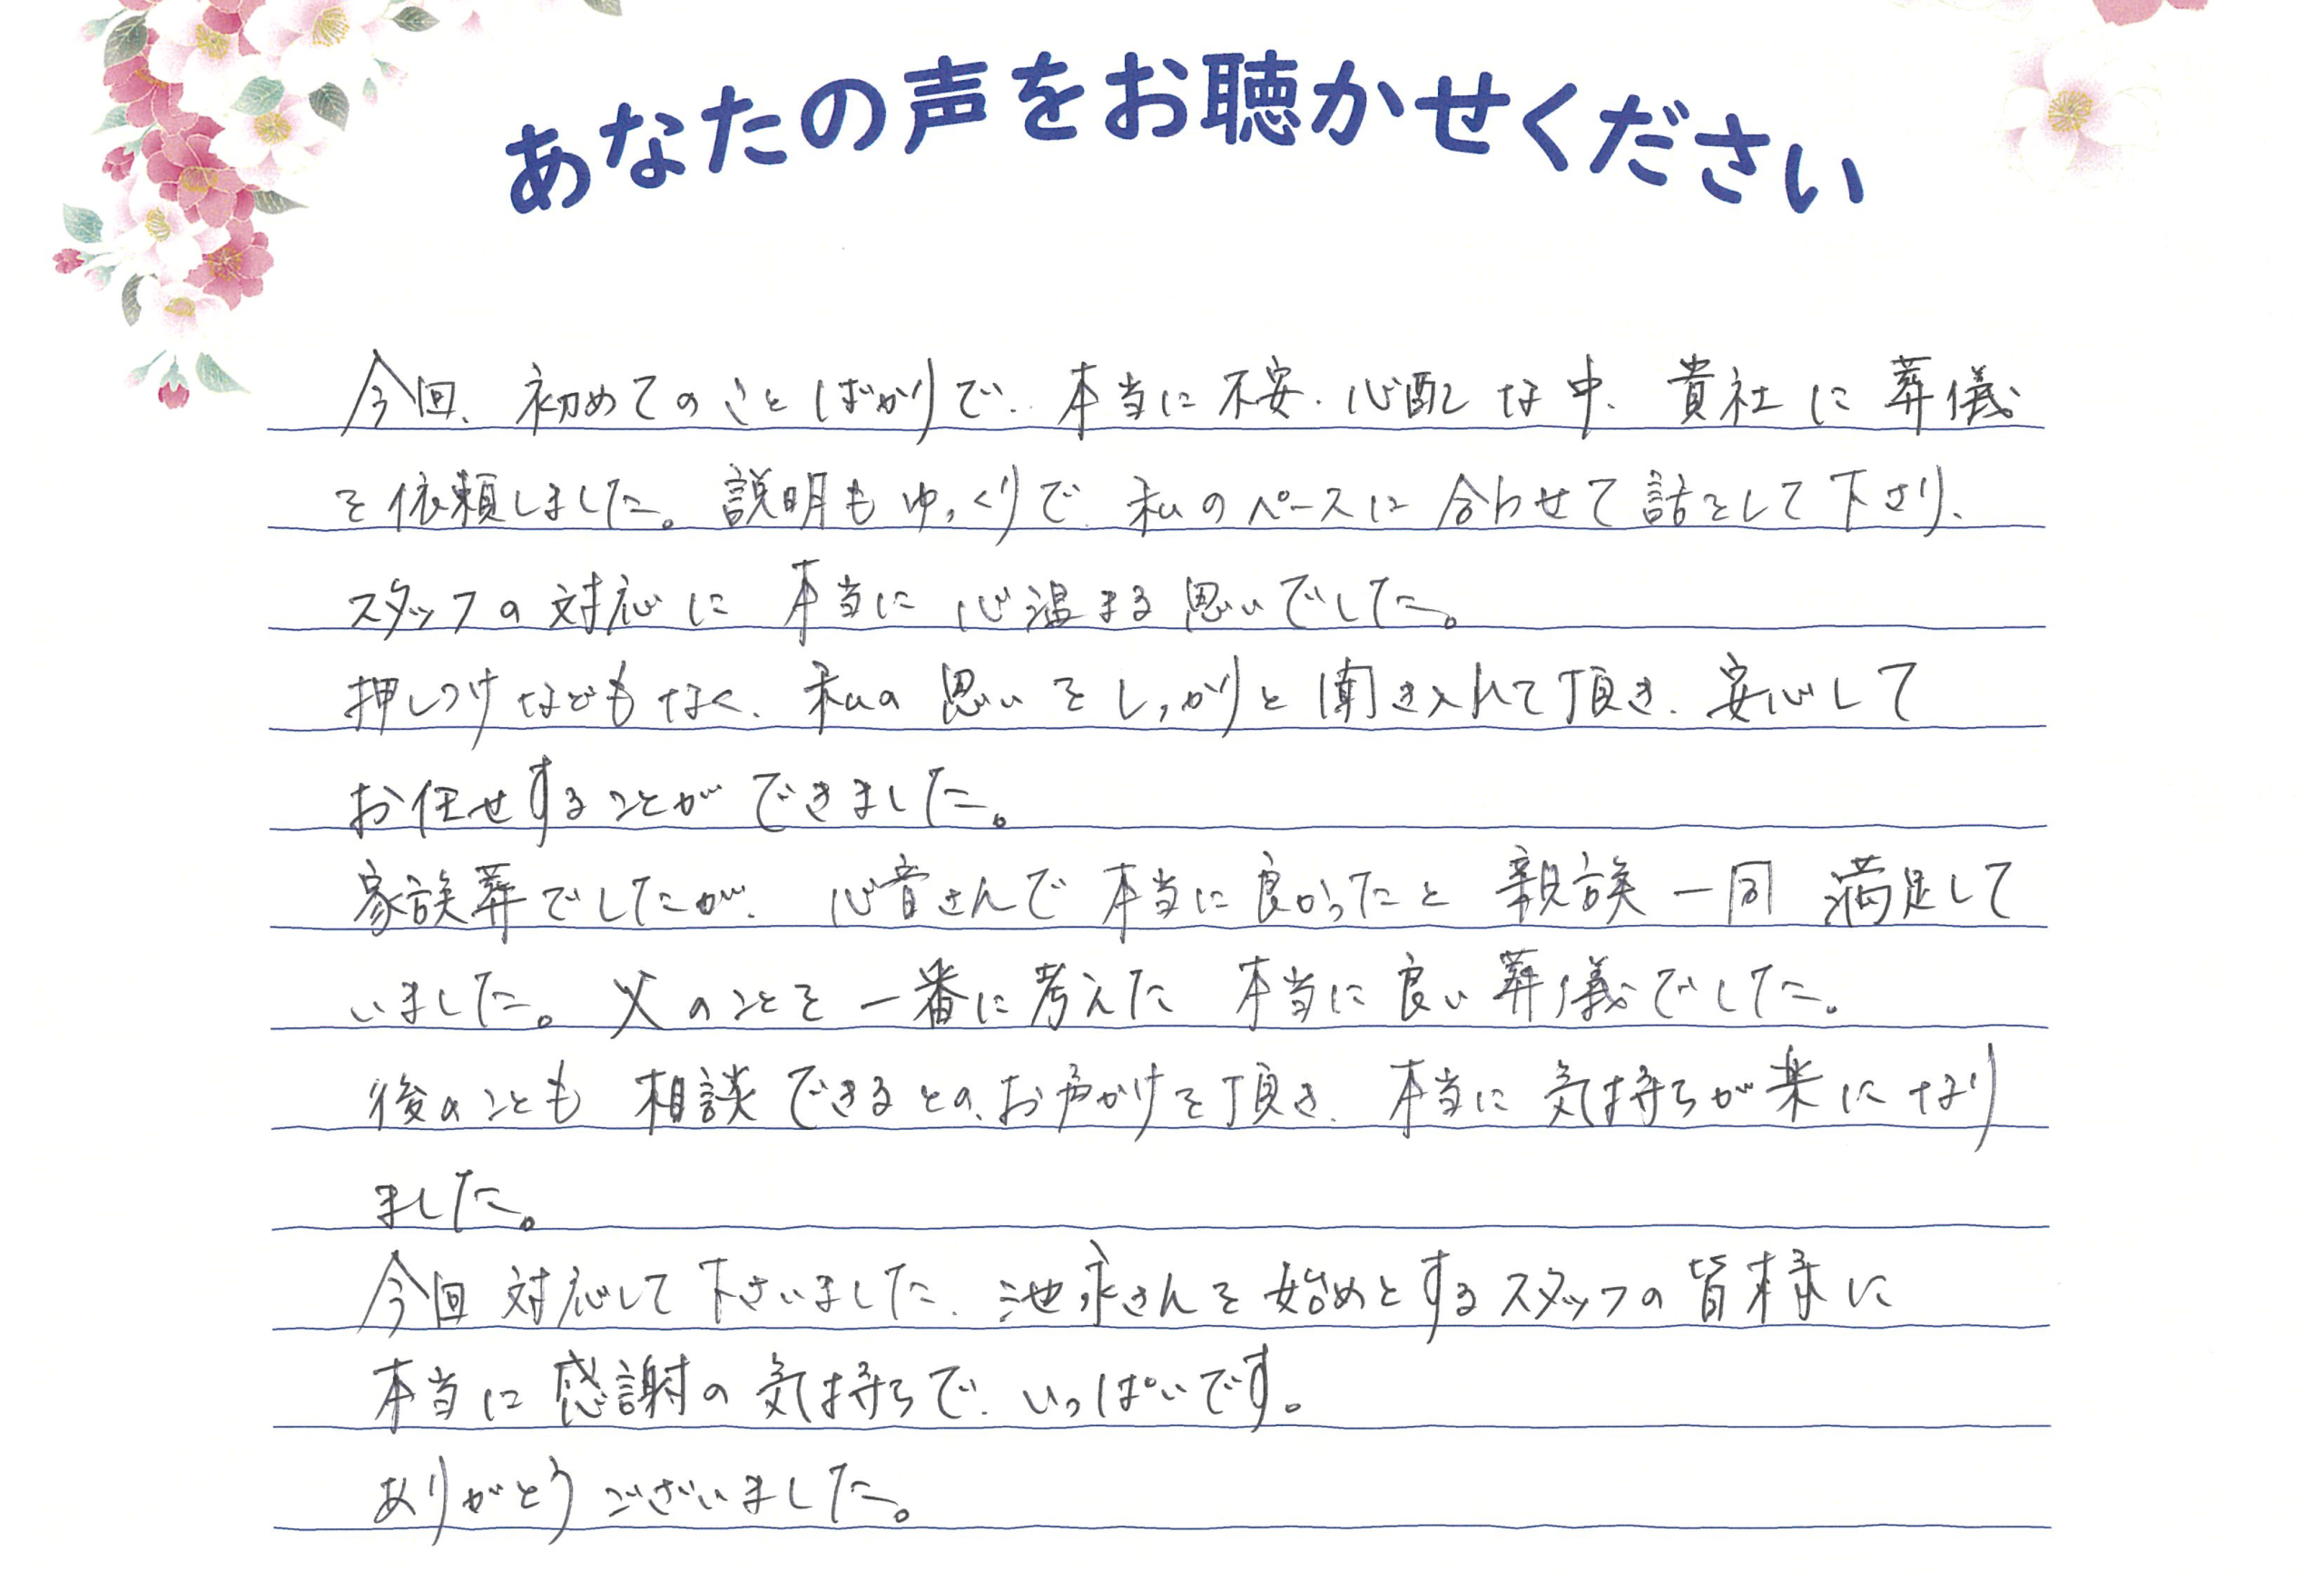 あなたの声をお聴かせください
今回、初めてのことばかりで、本当に不安・心配な中、貴社に葬儀
を依頼しました。説明もゆっくりで、私のペースに合わせて話をして下さり、
スタッフの対応に本当に心温まる思いでした。
押しつけなどもなく、私の思いをしっかりと聞き入れて頂き、安心して
お任せすることができました。
家族葬でしたが、心音さんで本当に良かったと親族一同満足して
いました。父のことを一番に考えた本当に良い葬儀でした。
後のことも相談できるとの、お声かけを頂き、本当に気持ちが楽になり
ました。
今回対応して下さいました、池永さんを始めとするスタッフの皆様に
本当に感謝の気持ちで、いっぱいです。
ありがとうございました。